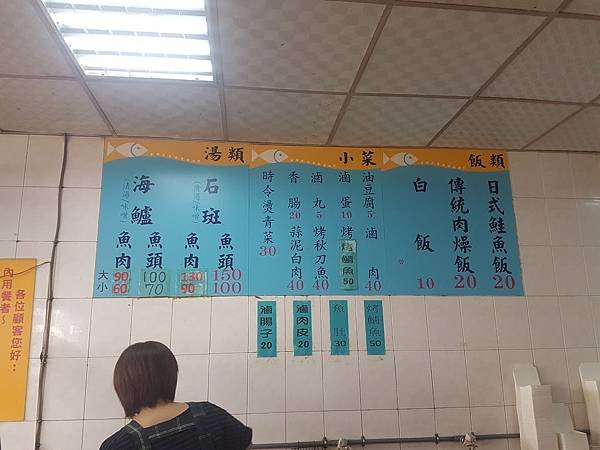 飯類
日式鮭魚飯 20
傳統肉燥飯 20
白飯 10
小菜
油豆腐 5
滷肉 40
滷蛋 10
烤鯖魚 50
滷丸 5
烤秋刀魚 40
香腸 20
蒜泥白肉 40
時令燙青菜 30
湯類
石斑
(清湯.味噌)
魚頭 150 100
魚肉 130 90
海鱸
(清湯.味噌)
魚頭 100 70
魚肉 90 60
大
小
烤鯖魚 50
魚肚 30
滷肉皮 20
滷腸子 20
各位顧客您好:
內用餐者~